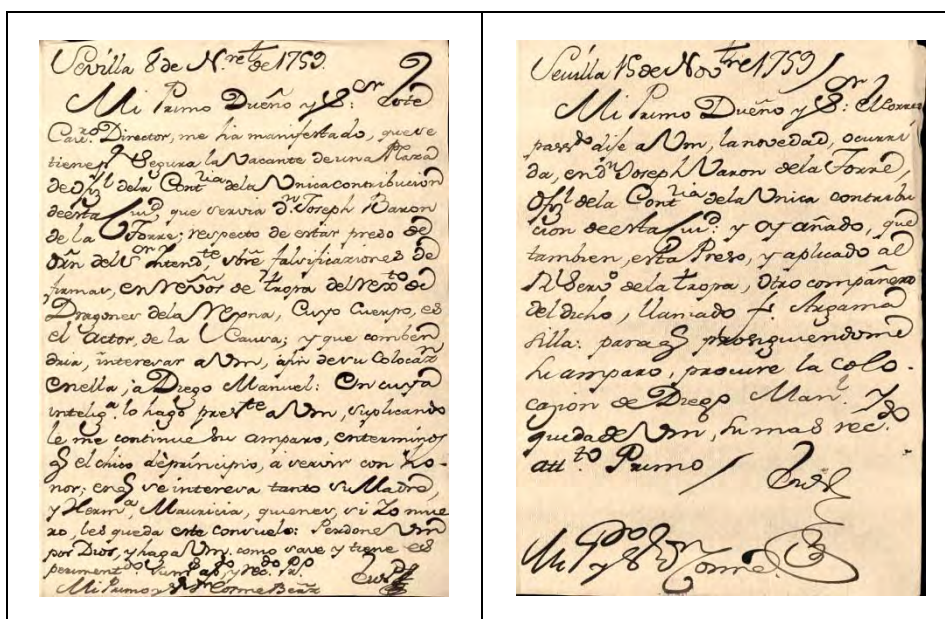 Sevilla 8 de N.re de 1759.
Mi Primo Dueño y S.or este
Cav.ro Director, me ha manifestado, que se
tiene p.r Segura la Vacante de una Plaza
de Ofi.l dela Cont.ria dela Unica contribucion
de esta Ciu.d, que servia d.n Joseph Baron
de la Torre; respecto de estar preso de
orn del S.or Intend.te, sobre falsificaziones de
firmas, en de tropa del de
Dragones dela Reyna, Cuyo Cuerpo, es
el Actor, de la Causa; y que comben
dria, interesar a Vm, afin de su Colocaz.n
en ella, a Diego Manuel: En cuya
intelig.a lo hago pres.te a Vm, suplicando
le me continue su amparo, enterminos
q el chico dè principio, à servir con ho-
nor; en q se interesa tanto su Madre,
y Herm.a Mauricia, quienes, si Yo mue
ro, les queda este consuelo: Perdone Vm
por Dios, y haga Vm. como save y tiene es
periment.do
Mi Primo y S.or Corme
Sevilla 15 de Nov.re 1759
Mi Primo Dueño y S.or: el Correo
pass.do dije a Vm, la novedad, ocurri
da, en d.n Joseph Varon dela Torre,
Ofi.l dela Cont.ria dela Unica contribu
cion de esta Ciu.d y oy añado, que
tambien, esta Preso, y aplicado al
R.l Serv.o dela tropa, Otro compañero
del dicho, llamado Argama
silla: para q prosiguiendome
su amparo, procure la colo-
cazion de Diego Man.l Y
queda de Vm, su mas rec.do
att.to Primo
Mi P.mo y S.or Corme.